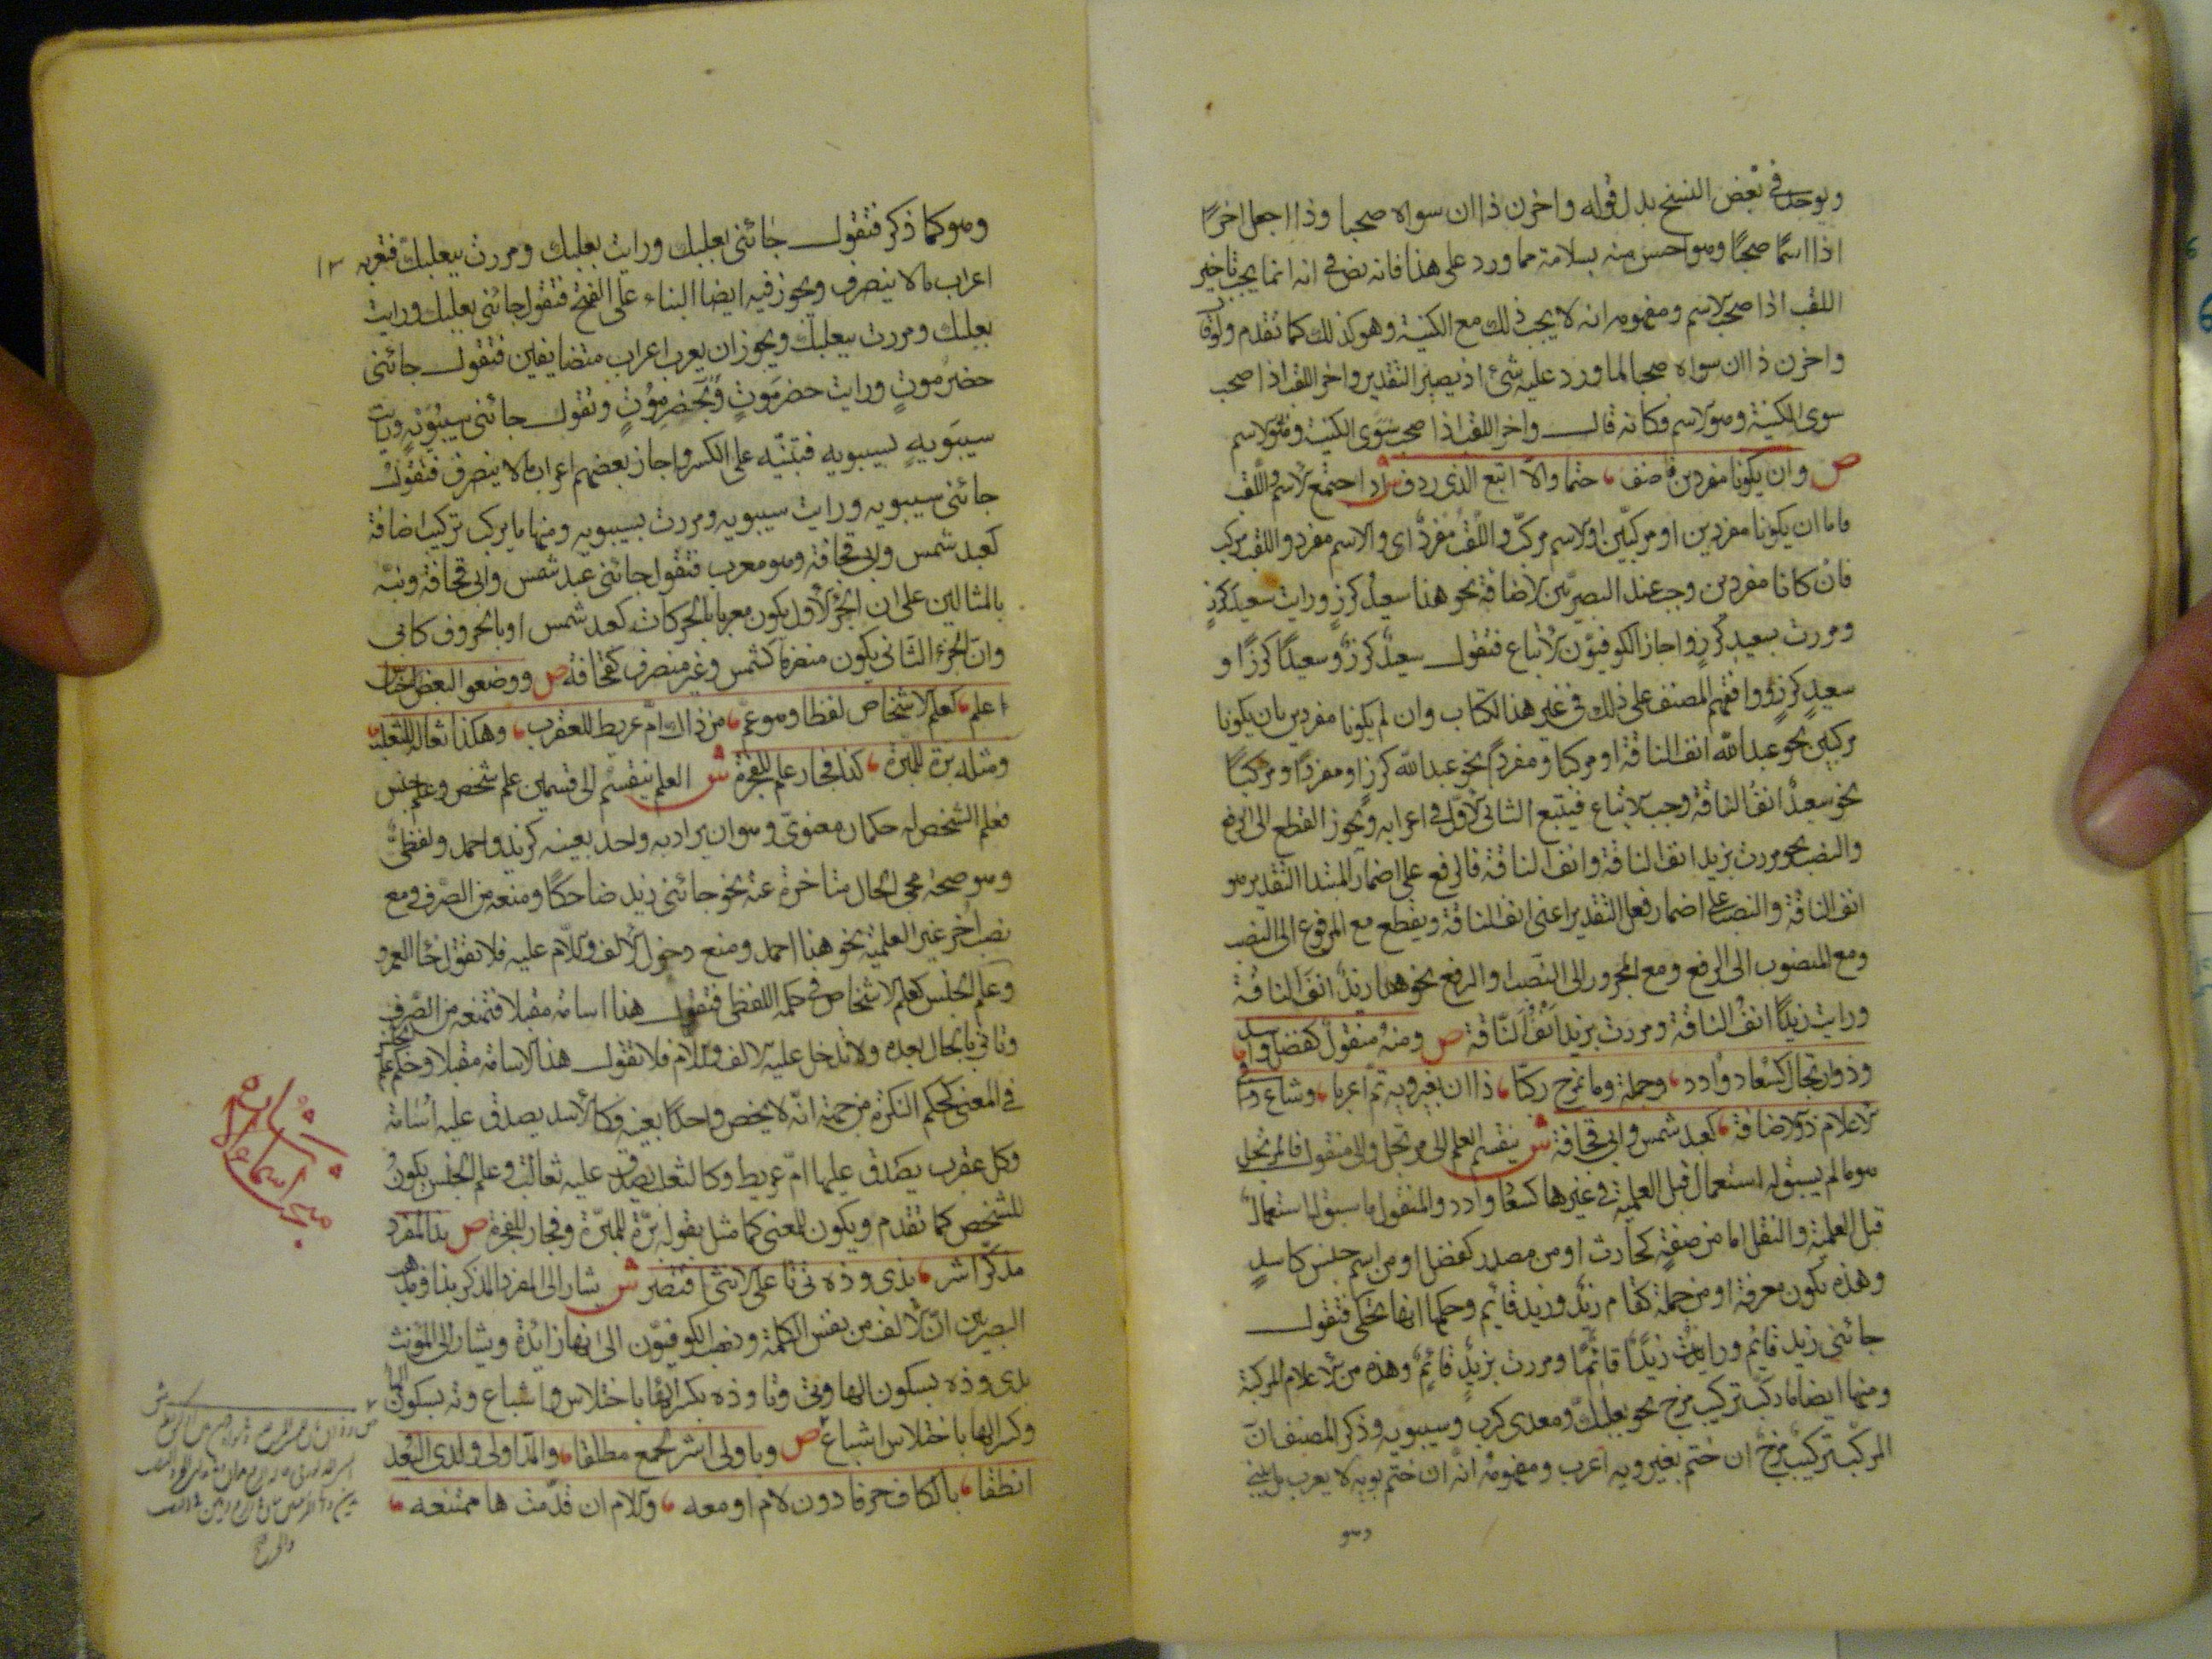 ويوجد في بعض النسخ بدل قوله واخرن ذا ان سواه صحبا وذا اجعل اخرا
اذا اسما صحبا وهو احسن منه بسلامة مما ورد على هذا فانه نص في انه انما يجب تاخير
اللقب اذا صحب الاسم ومفهومه انه لا يجب ذلك مع الكنية وهو كذلك كما تقدم ولو قال
واخرن ذا ان سواه صحبا لما ورد عليه شئ اذ يصير التقدير واخر اللقب اذا صحب
سوى الكنية وهو الاسم وكانه قال واخر اللقب اذا صحب سوى الكنية وهو الاسم
ص وان يكونا مفردين فاضف حتما والا اتبع الذي ردف ش اذا اجتمع الاسم واللقب
فاما ان يكونا مفردين او مركبين او الاسم مركب واللقب مفرد او الاسم مفرد واللقب مركب
فان كانا مفردين وجب عند البصريين الاضافة نحو هذا سعيد كرز ورايت سعيد كرز
ومررت بسعيد كرز واجاز الكوفيون الاتباع فتقول سعيد كرز وسعيدا كرزا و
سعيد كرز ووافقهم المصنف على ذلك في غير هذا الكتاب وان لم يكونا مفردين بان يكونا
مركبين نحو عبد الله انف الناقة او مركبا ومفردا نحو عبد الله كرز او مفردا ومركبا
نحو سعيد انف الناقة وجب الاتباع فيتبع الثاني الاول في اعرابه ويجوز القطع الى الرفع
والنصب نحو مررت بزيد انف الناقة وانف الناقة فالرفع على اضمار المبتدا التقدير هو
انف الناقة والنصب على اضمار فعل التقدير اعنى انف الناقة ويقطع مع المرفوع الى النصب
ومع المنصوب الى الرفع ومع المجرور الى النصب والرفع نحو هذا زيد انف الناقة
ورايت زيدا انف الناقة ومررت بزيد انف الناقة ص ومنه منقول كفضل واسد
وذو ارتجال كسعاد وادد وجملة وما بمزج ركبا ذا ان بغير ويه تم اعربا وشاع في
الاعلام ذو الاضافة كعبد شمس وابي قحافة ش ينقسم العلم الى مرتجل والى منقول فالمرتجل
هو ما لم يسبق له استعمال قبل العلمية في غيرها كسعاد وادد والمنقول ما سبق له استعمال
قبل العلمية والنقل اما من صفة كحارث او من مصدر كفضل او من اسم جنس كاسد
وهذه تكون معربة او من جملة كقام زيد وزيد قائم وحكمها انها تحكى فتقول
جائني زيد قائم ورايت زيدا قائما ومررت بزيد قائم وهذه من الاعلام المركبة
ومنها ايضا ما ركب تركيب مزج نحو بعلبك ومعدي كرب وسيبويه وذكر المصنف ان
المركب تركيب مزج ان ختم بغير ويه اعرب ومفهومه انه ان ختم بويه لا يعرب بل يبنى
وهو
١٣
وهو كما ذكر فتقول جائني بعلبك ورايت بعلبك ومررت ببعلبك فتعربه
اعراب ما لا ينصرف ويجوز فيه ايضا البناء على الفتح فتقول جائني بعلبك ورايت
بعلبك ومررت ببعلبك ويجوز ان يعرب اعراب متضايفين فتقول جائني
حضرموت ورايت حضرموت وبحضرموت وتقول جائني سيبويه ورايت
سيبويه بسيبويه فتبنيه على الكسر واجاز بعضهم اعراب ما لا ينصرف فتقول
جائني سيبويه ورايت سيبويه ومررت بسيبويه ومنها ما يركب تركيب اضافة
كعبد شمس وابي قحافة وهو معرب فتقول جائني عبد شمس وابي قحافة ونبه
بالمثالين على ان الجزء الاول يكون معربا بالحركات كعبد شمس او بالحروف كابي
وان الجزء الثاني يكون منصرفا كشمس وغير منصرف كقحافة ص ووضعوا لبعض الاجناس
علم كعلم الاشخاص لفظا وهو عم من ذاك ام عريط للعقرب وهكذا ثعالة للثعلب
ومثله برة للمبرة كذا فجار علم للفجرة ش العلم ينقسم الى قسمين علم شخص وعلم جنس
فعلم الشخص له حكمان معنوي وهو ان يراد به واحد بعينه كزيد واحمد ولفظي
وهو صحة مجئ الحال متاخرة عنه نحو جائني زيد ضاحكا ومنعه من الصرف مع
سبب اخر غير العلمية نحو هذا احمد ومنع دخول الالف واللام عليه فلا تقول جا العمرو
وعلم الجنس كعلم الاشخاص في حكمه اللفظي فتقول هذا اسامة مقبلا فتمنعه من الصرف
وتاتي بالحال بعده ولا تدخل عليه الالف واللام فلا تقول هذا الاسامة مقبلا وحكم علم الجنس
في المعنى كحكم النكرة من جهة انه لا يخص واحدا بعينه وكل اسد يصدق عليه اسامة
وكل عقرب يصدق عليها ام عريط وكل ثعلب يصدق عليه ثعالة وعلم الجنس يكون
للشخص كما تقدم ويكون للمعنى كما مثل بقوله برة للمبرة وفجار للفجرة ص بذا لمفرد
مذكر اشر بذي وذه تي تا على الانثى اقتصر ش يشار الى المفرد المذكر بذا ومذهب
البصريين ان الالف من نفس الكلمة وذهب الكوفيون الى انها زايدة ويشار الى المؤنث
بذي وذه بسكون الهاء وتي وتا وذه بكسر الهاء باختلاس واشباع وته بسكون الهاء
وكسر الهاء باختلاس واشباع ص وباولى اشر لجمع مطلقا والمد اولى ولدى البعد
انطقا بالكاف حرفا دون لام او معه واللام ان قدمت ها ممتنعه